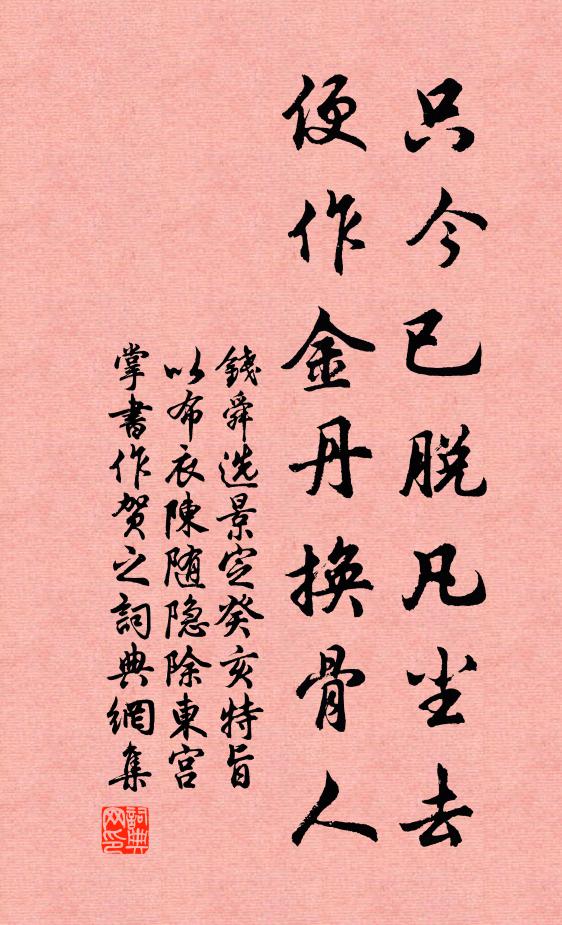 只今已脱凡尘去
便作金丹换骨人
錢舜选景定癸亥特旨
以布衣陳随隐除東宫
掌書作贺之詞典網集
詞典网印